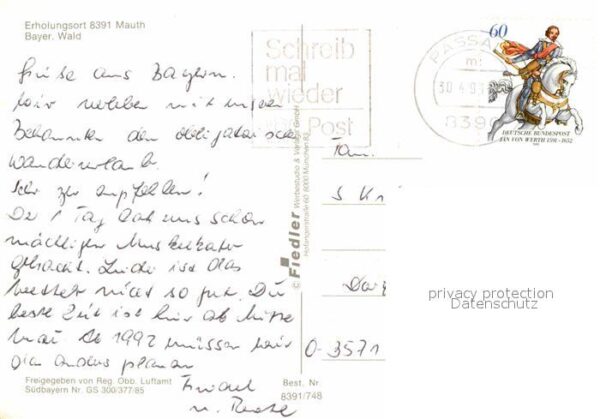 Erholungsort 8391 Mauth
Bayer. Wald
Grüße aus Bayern.
Wir wollen mit unseren
Bekannten den obligatorischen
Wanderurlaub.
Sehr zu empfehlen!
Der 1 Tag hat uns schon
mächtigen Muskelkater
gebracht. Leider ist das
Wetter nicht so gut. Die
beste Zeit ist hier ab Mitte
Mai. Ab 1992 müssen wir
den anders planen
u.
Freigegeben von Reg. Obb. Luftamt
Südbayern Nr. GS 300/377/85
Best. Nr
8391/748
© Fiedler Werbestudio & Verlag GmbH
8000 München
Schreib
mal
wieder
Post
PASSA
30.4.93
839
60
DEUTSCHE BUNDESPOST
JAN VON WERTH 1591-1652
Fam.
S
O-3571
privacy protection
Datenschutz